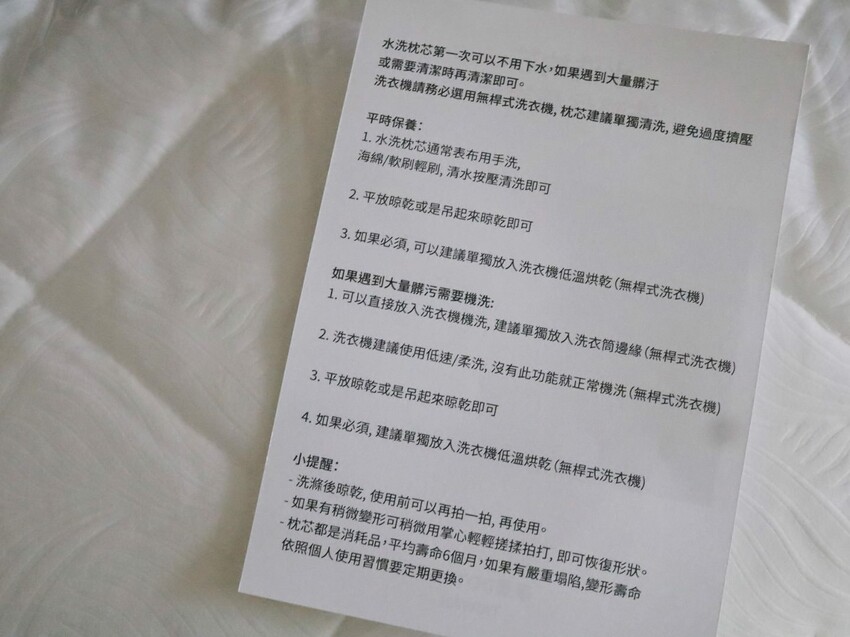 水洗枕芯第一次可以不用下水，如果遇到大量髒汙
或需要清潔時再清潔即可。
洗衣機請務必選用無桿式洗衣機, 枕芯建議單獨清洗, 避免過度擠壓
平時保養：
1. 水洗枕芯通常表布用手洗,
海綿/軟刷輕刷, 清水按壓清洗即可
2. 平放晾乾或是吊起來晾乾即可
3. 如果必須, 可以建議單獨放入洗衣機低溫烘乾（無桿式洗衣機）
如果遇到大量髒污需要機洗：
1. 可以直接放入洗衣機機洗, 建議單獨放入洗衣筒邊緣（無桿式洗衣機）
2. 洗衣機建議使用低速/柔洗, 沒有此功能就正常機洗（無桿式洗衣機）
3. 平放晾乾或是吊起來晾乾即可
4. 如果必須, 建議單獨放入洗衣機低溫烘乾（無桿式洗衣機）
小提醒：
- 洗滌後晾乾, 使用前可以再拍一拍, 再使用。
- 如果有稍微變形可稍微用掌心輕輕搓揉拍打, 即可恢復形狀。
- 枕芯都是消耗品，平均壽命6個月，如果有嚴重塌陷,變形壽命
依照個人使用習慣要定期更換。